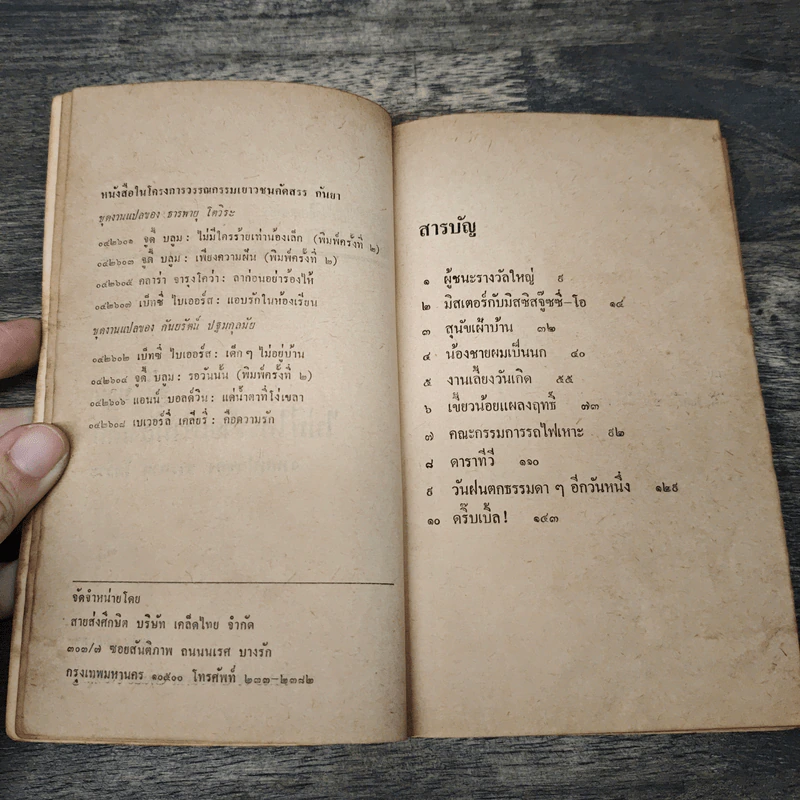 หนังสือในโครงการวรรณกรรมเยาวชนคัดสรร กันยา
ชุดงานแปลของ ธารพายุ โตวิระ
๐๔๒๖๐๑ จูดี้ บลูม : ไม่มีใครร้ายเท่าน้องเล็ก (พิมพ์ครั้งที่ ๒)
๐๔๒๖๐๓ จูดี้ บลูม : เพียงความฝัน (พิมพ์ครั้งที่ ๒)
๐๔๒๖๐๕ คลาร่า จารุงโคว่า : ลาก่อนอย่าร้องไห้
๐๔๒๖๐๗ เบ็ทซี่ ไบเออร์ส : แอบรักในห้องเรียน
ชุดงานแปลของ กันยรัตน์ ปฐมกุลมัย
๐๔๒๖๐๒ เบ็ทซี่ ไบเออร์ส : เด็กๆ ไม่อยู่บ้าน
๐๔๒๖๐๔ จูดี้ บลูม : รอวันนั้น (พิมพ์ครั้งที่ ๒)
๐๔๒๖๐๖ แอนน์ บอลด์วิน : แด่น้ำตาที่โง่เขลา
๐๔๒๖๐๘ เบเวอร์ลี่ เคลียรี่ : คือความรัก
จัดจำหน่ายโดย
สายส่งศึกษิต บริษัท เคล็ดไทย จำกัด
๓๐๓/๗ ซอยสันติภาพ ถนนนเรศ บางรัก
กรุงเทพมหานคร ๑๐๕๐๐ โทรศัพท์ ๒๓๓-๒๓๘๒
สารบัญ
๑ ผู้ชนะรางวัลใหญ่ ๙
๒ มิสเตอร์กับมิสซิสจู๊ซซี่-โอ ๑๔
๓ สุนัขเฝ้าบ้าน ๓๒
๔ น้องชายผมเป็นนก ๔๐
๕ งานเลี้ยงวันเกิด ๕๕
๖ เขี้ยวน้อยแผลงฤทธิ์ ๗๓
๗ คณะกรรมการรถไฟเหาะ ๙๒
๘ ดาราทีวี ๑๑๐
๙ วันฝนตกธรรมดา ๆ อีกวันหนึ่ง ๑๒๙
๑๐ ดริ๊บเบิ้ล! ๑๔๓